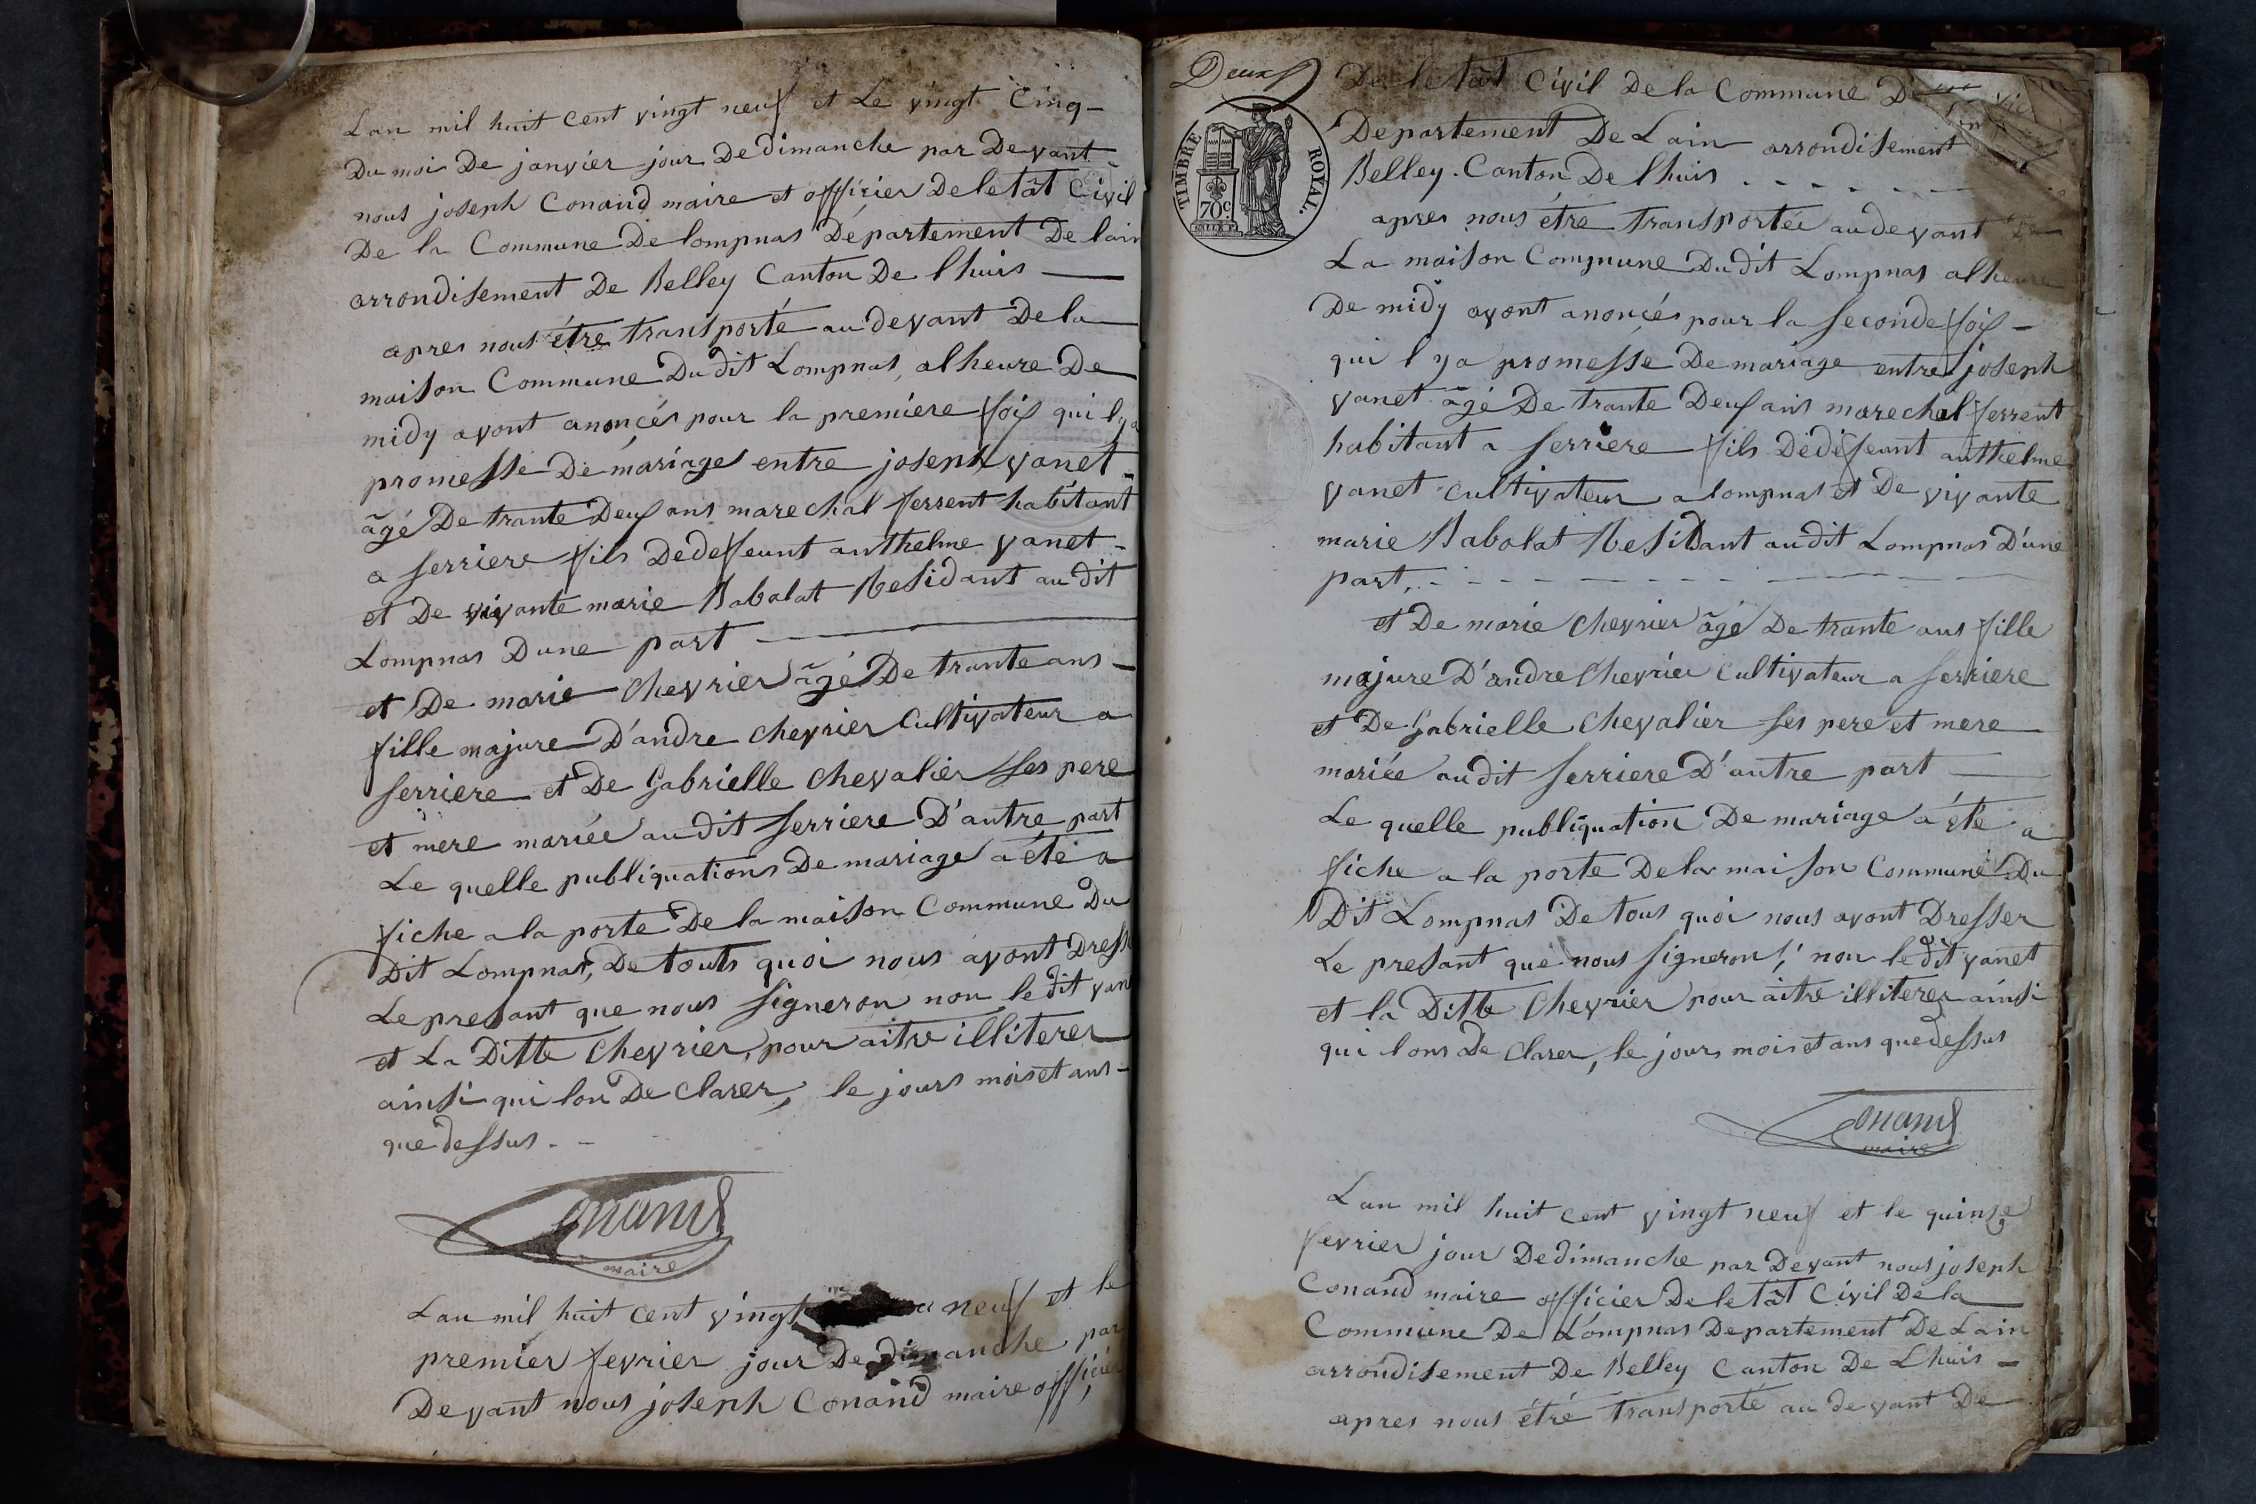 Lan mil huit cent vingt neuf et Le vingt Cinq
Du moi De janvier jour De dimanche par Devant
nous joseph Conand maire et officier De letat Civil
De la Commune De lompnas Département De lain
arrondisement De Belley Canton De lhuis
apres nous étre transporté au devant De la
maison Commune Du dit Lompnas, alheure De
midy avont anonçés pour la premiere fois qui lya
promesse De mariage entre joseph vanet
âgé De trante Deuf ans marechal ferrent habitant
a serriere fils De defeunt anthelme vanet
et De vivante marie Babolat Residant au dit
Lompnas Dune part
et De marie Chevrier âgé De trante ans
fille majure D'andre Chevrier Cultivateur a
serriere et De Gabrielle Chevalier ses pere
et mere mariée au dit serriere D'autre part
Le quelle publiquations De mariage a été a
fiche a la porte De la maison Commune Du
Dit Lompnas, De touts quoi nous avont Dress
Le presant que nous signeron non le dit van
et La Ditte Chevrier, pour aitre illiterer
ainsi qui lon De clarer, le jours mois et ans
que dessus
Conand
maire
Lan mil huit cent vingt neuf et le
premier fevrier jour De dimanche par
Devant nous joseph Conand maire officier
Deux
TIMBRE ROYAL.
70c
De letat Civil De la Commune De
Departement De Lain arrondisement
Belley. Canton De lhuis
apres nous étre transportée au devant De
La maison Commune Du dit Lompnas alheure
De midy avont anonçés pour la seconde fois
qui l ya promesse De mariage entre joseph
vanet âgé De trante Deuf ans marechal ferrent
habitant a serriere fils De defeunt anthelme
vanet cultivateur a lompnas et De vivante
marie Babolat Residant au dit Lompnas D'une
part,
et De marie Chevrier âgé De trante ans fille
majure D'andre Chevrier Cultivateur a serriere
et De Gabrielle Chevalier ses pere et mere
mariée au dit serriere D'autre part
Le quelle publiquation De mariage a été a
fiche a la porte De la maison Commune Du
Dit Lompnas De tous quoi nous avont Dresser
Le presant que nous signeron, non le dit vanet
et la Ditte Chevrier pour aitre illiterer ainsi
qui lons De clarer, le jours mois et ans que dessus
Conand
maire
Lan mil huit cent vingt neuf et le quinse
fevrier jour De dimanche par Devant nous joseph
Conand maire officier De letat Civil De la
Commune De Lompnas Departement De Lain
arrondisement De Belley Canton De Lhuis
apres nous étré transporté au devant De